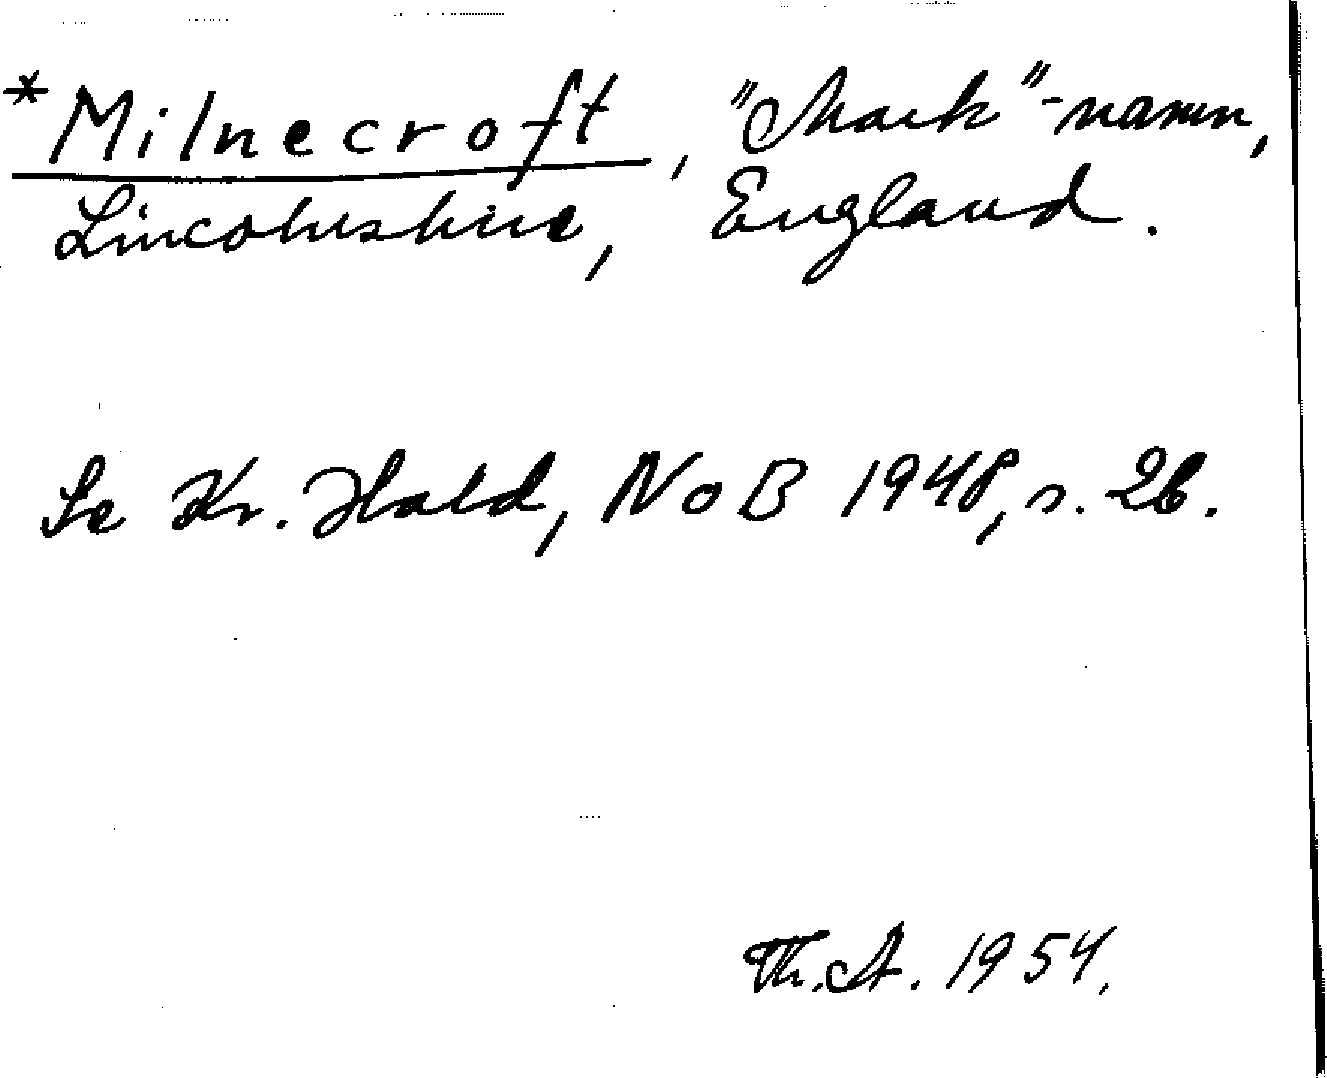 *Milnecroft, "Mark"-namn,
Lincolnshire, England.
Se Kr. Hald, NoB 1948, s. 26.
Th. A. 1954.